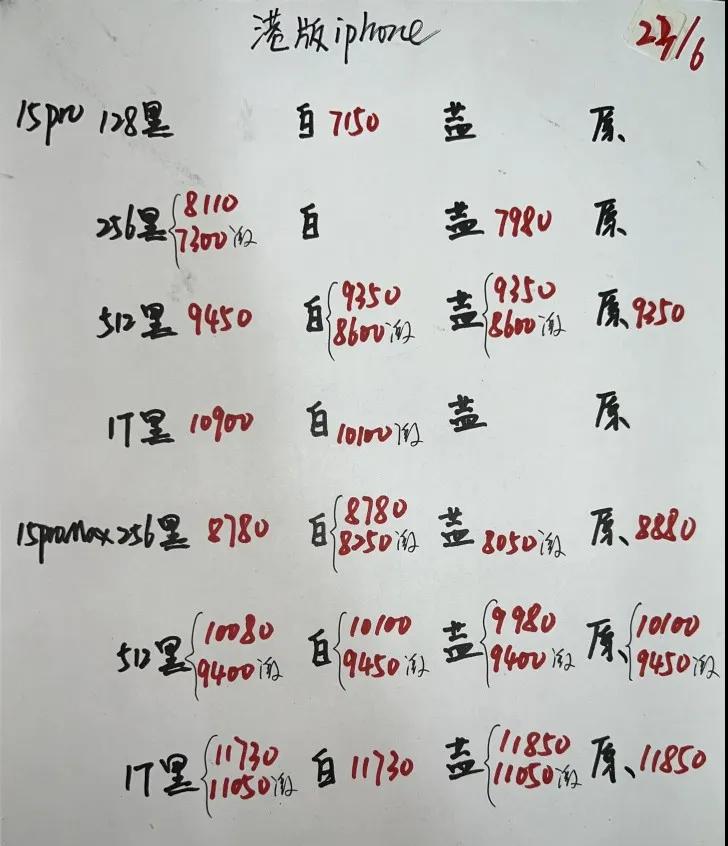 港版iphone 23/6
15pro 128黑 白 7150 蓝 原
256黑 8110 7300激 白 蓝 7980 原
512黑 9450 白 9350 8600激 蓝 9350 8600激 原 9350
1T黑 10900 白 10100激 蓝 原
15promax 256黑 8780 白 8780 8250激 蓝 8050激 原 8880
512黑 10080 9400激 白 10100 9450激 蓝 9980 9400激 原 10100 9450激
1T黑 11730 11050激 白 11730 蓝 11850 11050激 原 11850